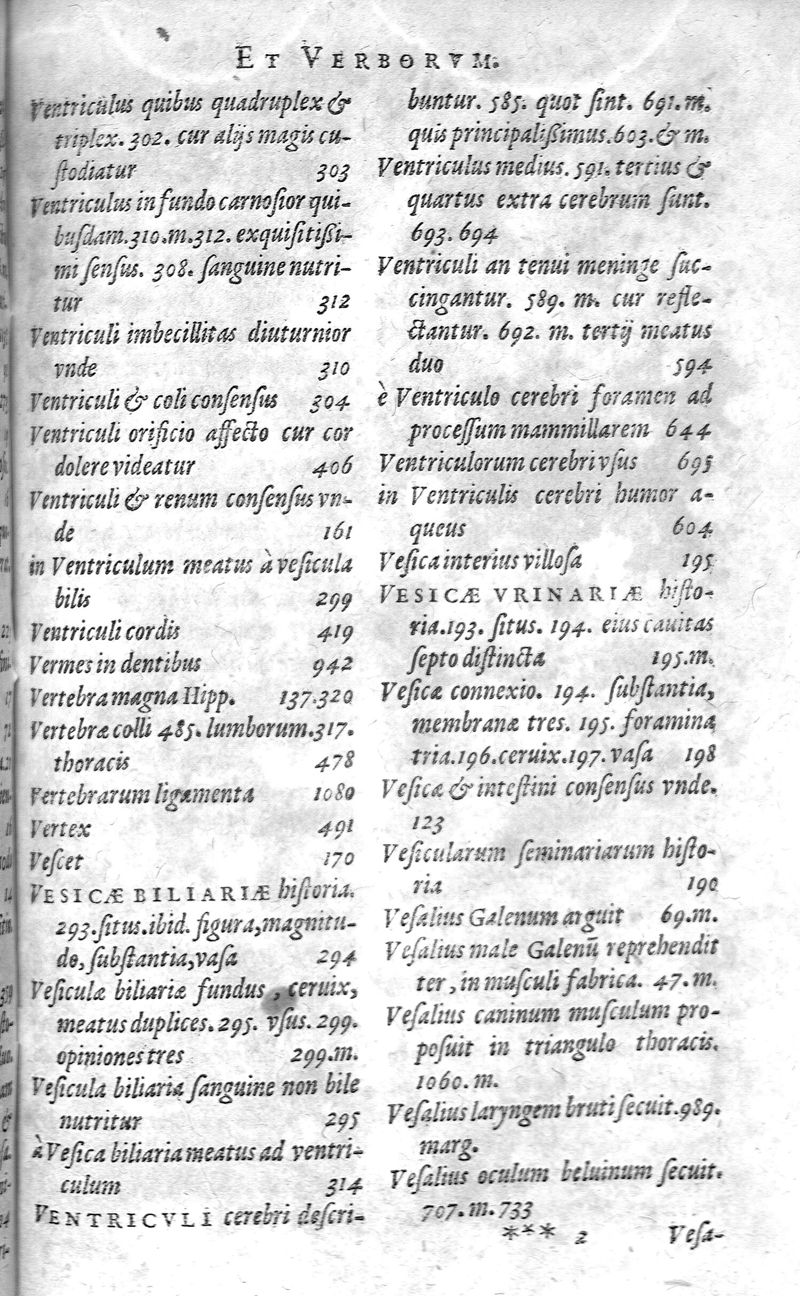 ET VERBORVM.
Ventriculus quibus quadruplex &
triplex. 302. cur alijs magis cu-
ſtodiatur 303
Ventriculus in fundo carnoſior qui-
buſdam.310.m.312. exquiſitißi-
mi ſenſus. 308. ſanguine nutri-
tur 312
Ventriculi imbecillitas diuturnior
vnde 310
Ventriculi & coli conſenſus 304
Ventriculi orificio affecto cur cor
dolere videatur 406
Ventriculi & renum conſenſus vn-
de 161
in Ventriculum meatus à veſicula
bilis 299
Ventriculi cordis 419
Vermes in dentibus 942
Vertebra magna Hipp. 137.320
Vertebræ colli 485. lumborum.317.
thoracis 478
Vertebrarum ligamenta 1080
Vertex 491
Veſcet 170
VESICÆ BILIARIÆ hiſtoria.
293.ſitus.ibid. figura,magnitu-
do, ſubſtantia,vaſa 294
Veſiculæ biliariæ fundus , ceruix,
meatus duplices. 295. vſus. 299.
opiniones tres 299.m.
Veſicula biliaria ſanguine non bile
nutritur 295
à Veſica biliaria meatus ad ventri-
culum 314
VENTRICVLI cerebri deſcri-
buntur. 585. quot ſint. 691.m.
quis principalißimus.603.& m.
Ventriculus medius. 591. tertius &
quartus extra cerebrum ſunt.
693. 694
Ventriculi an tenui meninge ſuc-
cingantur. 589. m. cur refle-
ctantur. 692. m. tertij meatus
duo 594
è Ventriculo cerebri foramen ad
proceſſum mammillarem 644
Ventriculorum cerebri vſus 695
in Ventriculis cerebri humor a-
queus 604
Veſica interius villoſa 195
VESICÆ VRINARIÆ hiſto-
ria.193. ſitus. 194. eius cauitas
ſepto diſtincta 195.m.
Veſicæ connexio. 194. ſubſtantia,
membranæ tres. 195. foramina
tria.196.ceruix.197.vaſa 198
Veſicæ & inteſtini conſenſus vnde.
123
Veſicularum ſeminariarum hiſto-
ria 190
Veſalius Galenum arguit 69.m.
Veſalius male Galenū reprehendit
ter, in muſculi fabrica. 47.m.
Veſalius caninum muſculum pro-
poſuit in triangulo thoracis.
1060.m.
Veſalius laryngem bruti ſecuit.989.
marg.
Veſalius oculum beluinum ſecuit.
707.m.733
*** 2 Veſa-